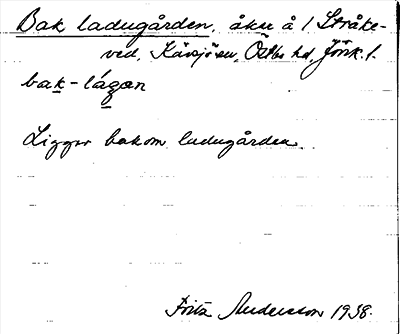 Bak ladugården, åker å 1 Stråke-
ved, Kävsjö sn, Östbo hd, Jönk. l.
bak-lágan
Ligger bakom ladugården.
Fritz Andersson 1938.